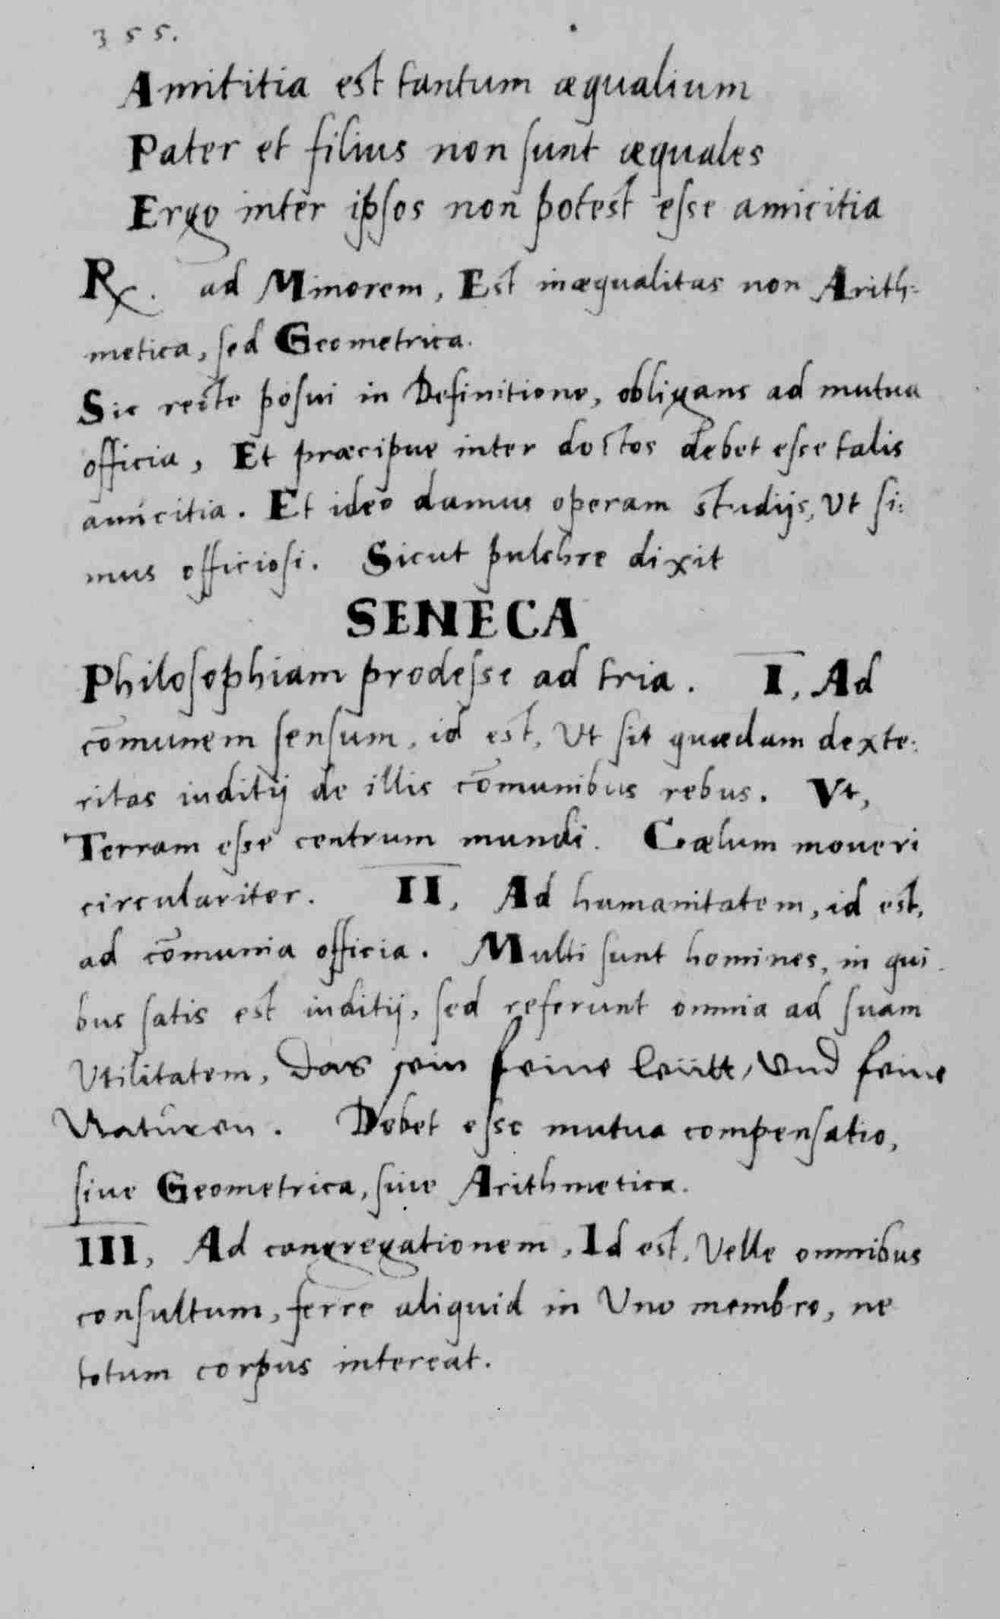 355.
Amititia est tantum æqualium
Pater et filius non sunt æquales
Ergo inter ipsos non potest esse amicitia
Rx. ad Minorem, Est inæqualitas non Arith:
metica, sed Geometrica.
Sic recte posui in Definitione, obligans ad mutua
officia, Et præcipue inter doctos debet esse talis
amicitia. Et ideo damus operam studijs, Ut si:
mus officiosi. Sicut pulchre dixit
SENECA
Philosophiam prodesse ad tria. I, Ad
com̄unem sensum, id est, Ut sit quædam dexte:
ritas iuditij de illis com̄unibus rebus. Vt,
Terram esse centrum mundi. Cælum moueri
circulariter. II, Ad humanitatem, id est,
ad com̄unia officia. Multi sunt homines, in qui
bus satis est iuditij, sed referunt omnia ad suam
Utilitatem, Das sein feine leütt, Und feine
Naturen. Debet esse mutua compensatio,
siue Geometrica, siue Arithmetica.
III, Ad congregationem, Id est, Velle omnibus
consultum, ferre aliquid in Uno membro, ne
totum corpus intereat.